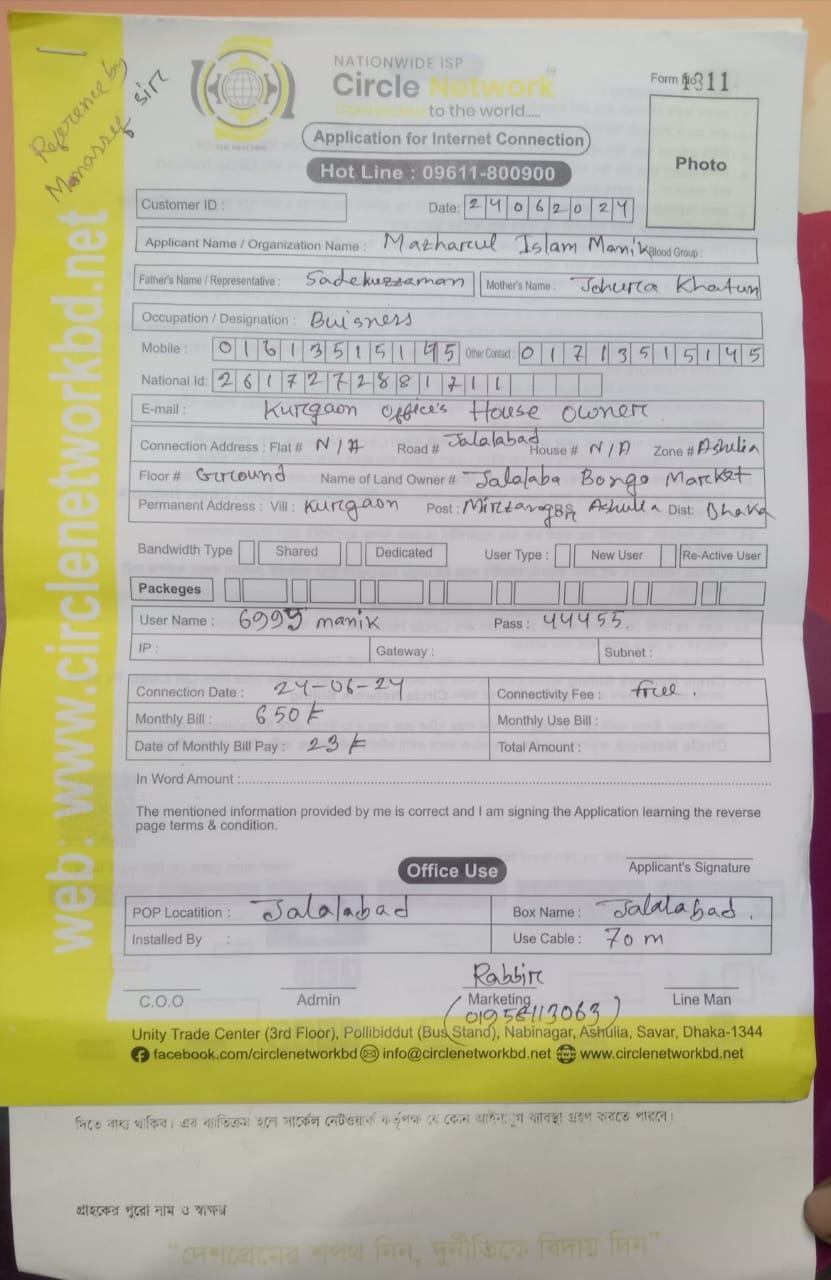 Reference by
Monassef sir
NATIONWIDE ISP
Circle Network
Connected to the world.....
Application for Internet Connection
Hot Line : 09611-800900
Form No 1311
Photo
Customer ID :
Date: 24062024
Applicant Name / Organization Name : Mazharul Islam Manik Blood Group :
Father's Name / Representative : Sadekuzzaman Mother's Name : Johura Khatun
Occupation / Designation : Buisness
Mobile : 01613515145 Other Contact : 01713515145
National Id: 2617272881711
E-mail : Kurgaon office's House owner
Connection Address : Flat # N/A Road # Jalalabad House # N/A Zone # Ashulia
Floor # Ground Name of Land Owner # Jalalaba Bongo Market
Permanent Address : Vill : Kurgaon Post : Ashulia Dist: Dhaka
Bandwidth Type Shared Dedicated User Type : New User Re-Active User
Packeges
User Name : 6999 manik Pass : 44455.
IP : Gateway : Subnet :
Connection Date : 24-06-24 Connectivity Fee : free.
Monthly Bill : 650 Monthly Use Bill :
Date of Monthly Bill Pay : 23 Total Amount :
In Word Amount :
The mentioned information provided by me is correct and I am signing the Application learning the reverse
page terms & condition.
Applicant's Signature
Office Use
POP Locatition : Jalalabad Box Name : Jalalabad.
Installed By : Use Cable : 70 m
Rabbir
C.O.O Admin Marketing Line Man
(01958113063)
Unity Trade Center (3rd Floor), Pollibiddut (Bus Stand), Nabinagar, Ashulia, Savar, Dhaka-1344
facebook.com/circlenetworkbd info@circlenetworkbd.net www.circlenetworkbd.net
web: www.circlenetworkbd.net
দিতে বাধ্য থাকিব। এর ব্যতিক্রম হলে সার্কেল নেটওয়ার্ক কর্তৃপক্ষ যে কোন আইনানুগ ব্যবস্থা গ্রহণ করতে পারবে।
গ্রাহকের পুরো নাম ও স্বাক্ষর
"দেশপ্রেমের শপথ নিন, দুর্নীতিকে বিদায় দিন"